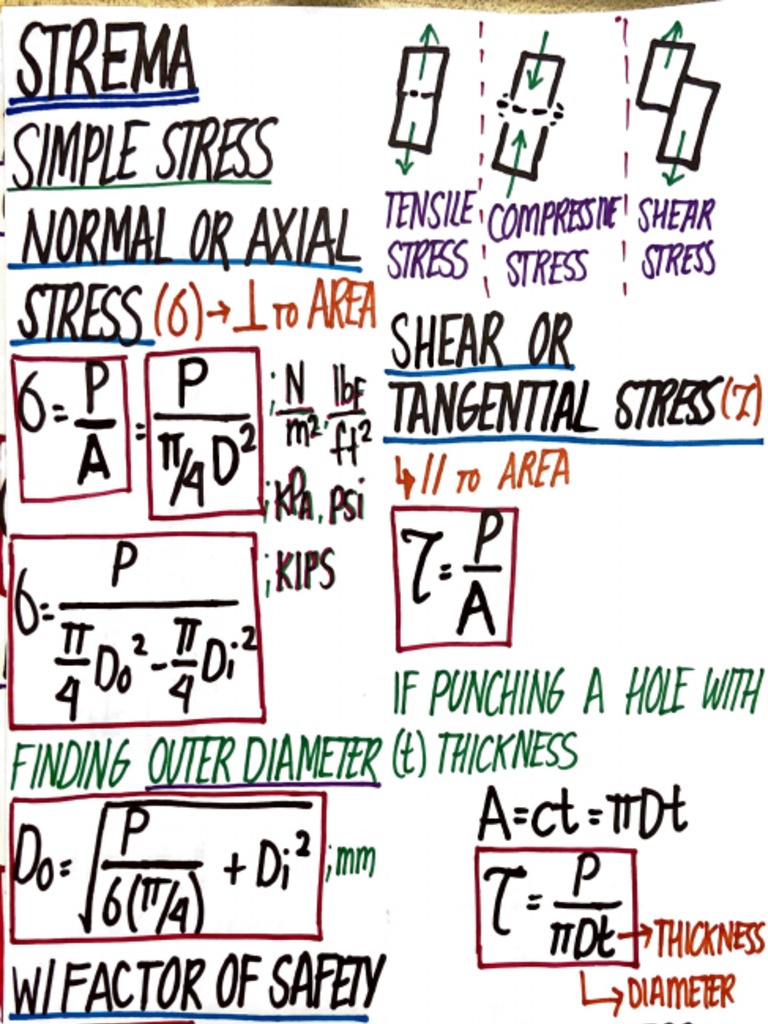 STREMA
SIMPLE STRESS
NORMAL OR AXIAL
STRESS (6) → ⊥ TO AREA
6 = P/A = P/(π/4 D²) ; N/m², lbf/ft²
; KPa, PSi
6 = P/(π/4 Do² - π/4 Di²) ; KIPS
FINDING OUTER DIAMETER
Do = √(P/(6(π/4)) + Di²) ; mm
W/ FACTOR OF SAFETY
TENSILE STRESS
COMPRESSIVE STRESS
SHEAR STRESS
SHEAR OR
TANGENTIAL STRESS (τ)
↳ // TO AREA
τ = P/A
IF PUNCHING A HOLE WITH
(t) THICKNESS
A = ct = πDt
τ = P/(πDt) → THICKNESS
↳ DIAMETER